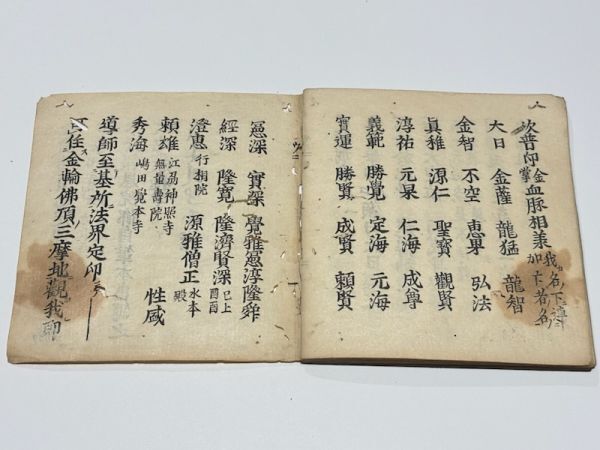 次普印掌金血脉相葉我名下導
加下若名
大日 金薩 龍猛 龍智
金智 不空 惠果 弘法
眞雅 源仁 聖寳 觀賢
淳祐 元杲 仁海 成尊
義範 勝覺 定海 元海
實運 勝賢 成賢 頼賢
憲深 實深 覺雅憲淳隆舜
經深 隆寛 隆濟賢深 已上酉酉
澄惠 行相院 源雅僧正 水本殿
頼雄 江刕神照寺無量壽院 性盛
秀海 嶋田覺本寺
導師至基所法界定印
金輪佛頂三摩地觀我